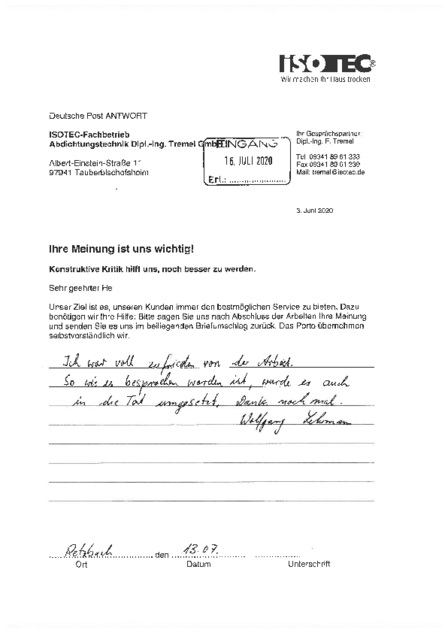 ISOTEC®
Wir machen Ihr Haus trocken
Deutsche Post ANTWORT
ISOTEC-Fachbetrieb
Abdichtungstechnik Dipl.-Ing. Tremel GmbH
EINGANG
16. JULI 2020
Erl.: ........................
Albert-Einstein-Straße 11
97941 Tauberbischofsheim
Ihr Gesprächspartner:
Dipl.-Ing. F. Tremel
Tel 09341 89 61 333
Fax 09341 89 61 339
Mail: tremel@isotec.de
3. Juni 2020
Ihre Meinung ist uns wichtig!
Konstruktive Kritik hilft uns, noch besser zu werden.
Sehr geehrter He
Unser Ziel ist es, unseren Kunden immer den bestmöglichen Service zu bieten. Dazu
benötigen wir Ihre Hilfe: Bitte sagen Sie uns nach Abschluss der Arbeiten Ihre Meinung
und senden Sie es uns im beiliegenden Briefumschlag zurück. Das Porto übernehmen
selbstverständlich wir.
Ich war voll zufrieden von der Arbeit.
So wie es besprochen worden ist, wurde es auch
in die Tat umgesetzt, Danke noch mal.
Wolfgang Lehmann
Retzbach den 13.07.
Ort Datum Unterschrift